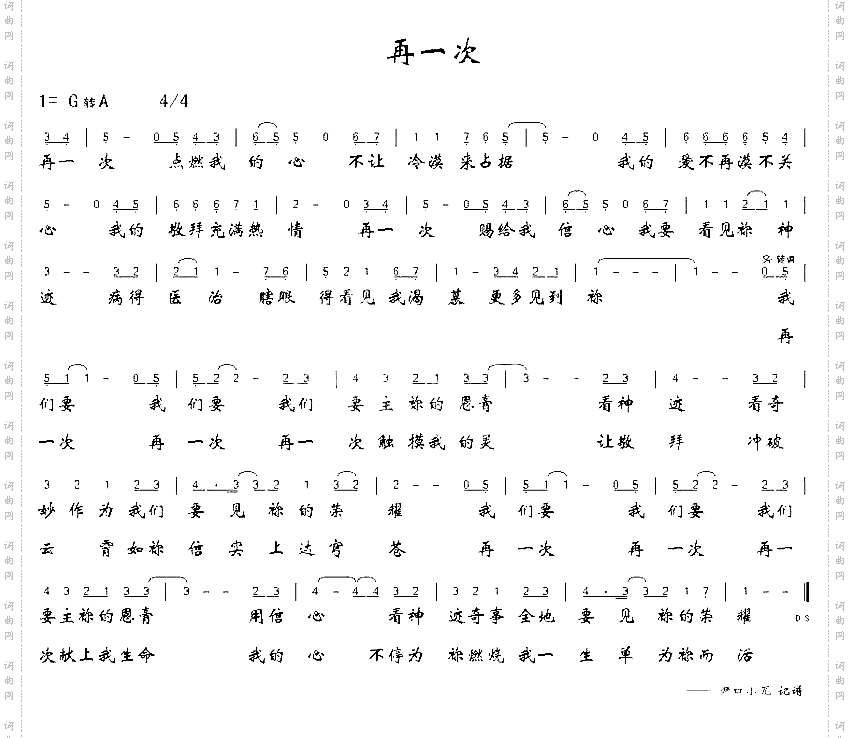 再一次
1= G 转 A 4/4
3 4 | 5 - 0 5 4 3 | 6 5 5 0 6 7 | 1 1 7 6 5 | 5 - 0 4 5 | 6 6 6 6 5 4 |
再一 次 点燃我 的 心 不让 冷漠 来占据 我的 爱不再漠不关
5 - 0 4 5 | 6 6 6 7 1 | 2 - 0 3 4 | 5 - 0 5 4 3 | 6 5 5 0 6 7 | 1 1 2 1 1 |
心 我的 敬拜充满热 情 再一 次 赐给我 信 心 我要 看见祢 神
转调
3 - - 3 2 | 2 1 1 - 7 6 | 5 2 1 6 7 | 1 - 3 4 2 1 | 1 - - - | 1 - - 0 5 |
迹 病得 医 治 瞎眼 得看见 我渴 慕 更多见到 祢 我
再
5 1 1 - 0 5 | 5 2 2 - 2 3 | 4 3 2 1 3 3 | 3 - - 2 3 | 4 - - 3 2 |
们要 我 们要 我们 要 主 祢的 恩膏 看神 迹 看奇
一次 再 一次 再一 次触摸我 的灵 让敬 拜 冲破
3 2 1 2 3 | 4 · 3 3 3 2 1 3 2 | 2 - - 0 5 | 5 1 1 - 0 5 | 5 2 2 - 2 3 |
妙作为 我们 要 见 祢 的 荣 耀 我 们要 我 们要 我们
云 霄如祢 信 实 上 达 穹 苍 再 一次 再 一次 再一
4 3 2 1 3 3 | 3 - - 2 3 | 4 - 4 4 3 2 | 3 2 1 2 3 | 4 · 3 3 2 1 7 | 1 - -
要主祢的恩膏 用信 心 看神 迹奇事 全地 要 见 祢的荣 耀
D S
次献上我生命 我的 心 不停为 祢燃烧 我一 生 单 为祢而 活
记谱
词曲网